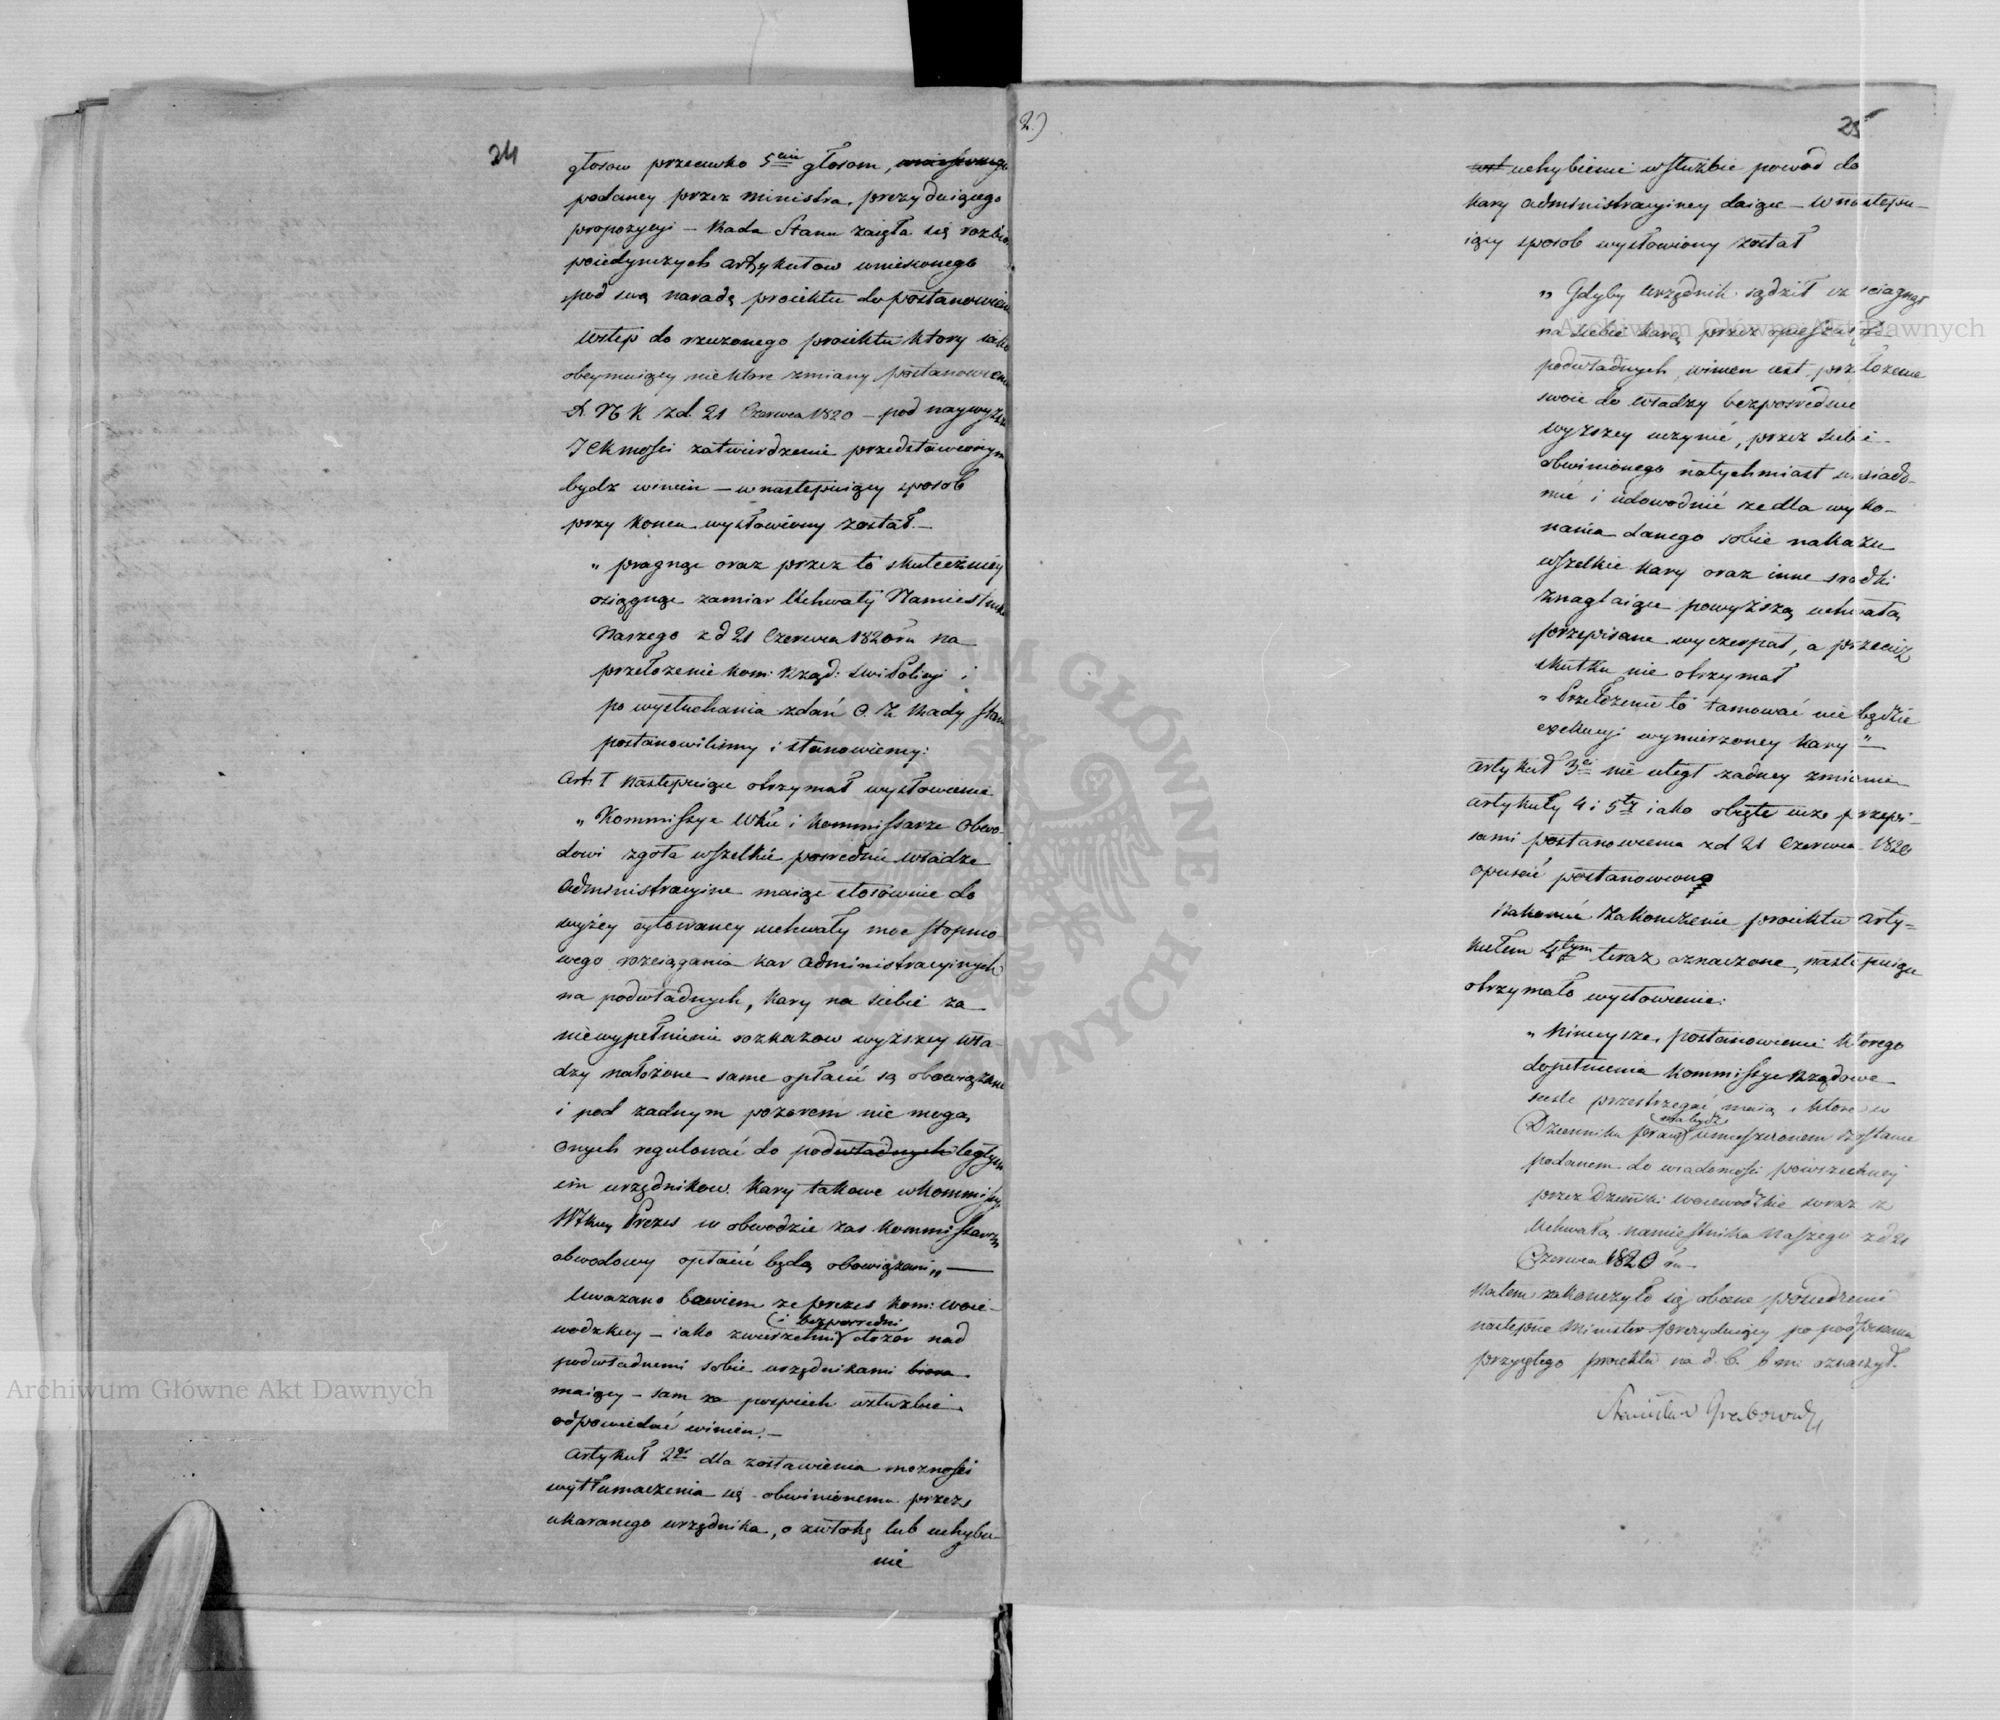 24
głosow przeciwko 5ciu głosom,
podaney przez ministra prezyduiącego
propozycyi – Rada Stanu zaięła się rozbio
poiedynczych artykułow wniesionego
pod swą naradę proiektu do postanowien
Wstęp do rzeczonego proiektu ktory iako
obeymuiący niektore zmiany postanowienia
X. N. K. z d. 21 Czerwca 1820 – pod naywyższe
JCKmości zatwierdzenie przedstawionym
bydz winien – w następuiący sposob
przy koncu wysłowiony został. –
„ pragnąc oraz przez to skuteczniey
osiągnąc zamiar Uchwały Namiestnika
Naszego z d 21 Czerwca 1820 ru na
przełożenie Kom: Rząd: S W i Policyi i
po wysłuchaniu zdań O. Z. Rady Stan
postanowiliśmy i stanowiemy:
Art. I następuiące otrzymał wysłowienie
„ Kommissye Wkie i Kommissarze Obwo-
dowi zgoła wszelkie posrednie władze
administracyine maiąc stosownie do
wyżey cytowaney uchwały moc stopnio
wego rozciągania kar administracyinych
na podwładnych, kary na siebie za
niewypełnienie rozkazow wyższey wła-
dzy nałożone same opłacić są obowiązane
i pod żadnym pozorem nie mogą
onych regulować do podwładnychległych
im urzędnikow. Kary takowe w Kommissyi
Wzkiey Prezes w obwodzie zas Kommissarz
obwodowy opłacić będą obowiązani „ —
Uwazano bowiem ze prezes Kom: Woie-
wodzkiey – iako zwierzchni (i bezposredni) dozor nad
podwładnemi sobie urzędnikami biora
maiący – sam za pospiech w służbie
odpowiedać winien. –
Artykuł 2gi dla zostawienia mozności
wytłumaczenia się obwinionemu przez
ukaranego urzędnika, o zwłokę lub uchybie
nie
2.)
25
uchybienie w służbie powod do
kary administracyiney daiące – w nastepu-
iący sposob wysłowiony został
„ Gdyby urzędnik sądził iz sciągnął
na siebie karę przez opieszałość
podwładnych, winien iest przełożenie
swoie do władzy bezposrednie
wyższey uczynić, przez siebie
obwinionego natychmiast uwiado-
mić i udowodnić ze dla wyko-
nania danego sobie nakazu
wszelkie kary oraz inne srodki
znaglaiące powyższą uchwałą
przepisane wyczerpał, a przeciez
skutku nie otrzymał
„ Przełożenie to tamować nie będzie
exekucyi wymierzoney kary „ —
Artykuł 3ci nie uległ zadney zmianie
artykuły 4 i 5ty iako obięte iuz przepi-
sami postanowienia z d 21 Czerwca 1820
opuscić postanowiono
Zakonczenie proiektu arty-
kułem 4tym teraz oznaczone, nastepuiące
otrzymało wysłowienie:
„ Ninieysze postanowienie ktorego
dopełnienia Kommissye Rządowe
scisle przestrzegać maią i ktore w
Dzienniku praw (ma bydz) umieszczonem zostanie
podanem do wiadomości powszechney
przez Dzienniki Woiewodzkie wraz z
Uchwałą Namiestnika Naszego z d 21
Czerwca 1820 ru –
Natem zakonczyło się obecne posiedzenie
nastepne Minister prezyduiący po podpisaniu
przyiętego proiektu na d. 6. b. m. oznaczył.
Stanisław Grabowski
Archiwum Główne Akt Dawnych
Archiwum Główne Akt Dawnych